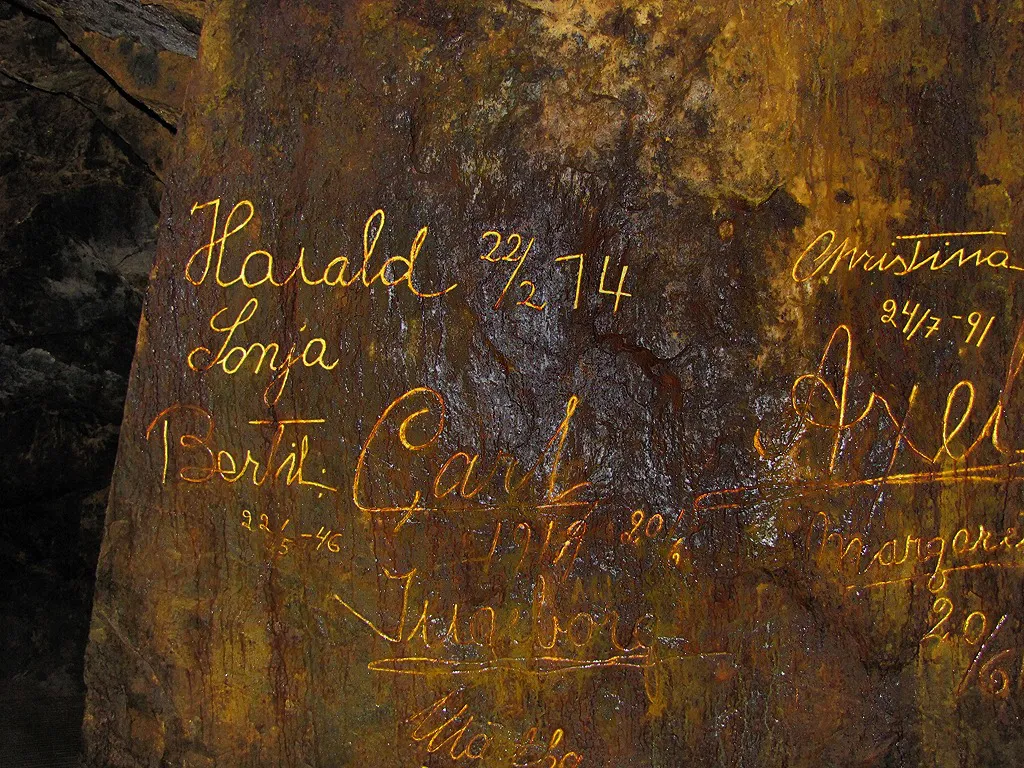 Harald 22/2 74
Sonja
Bertil.
22/5-46
Carl
1919 20/6
Ingeborg
Christina
24/7-91
Axel
20/6